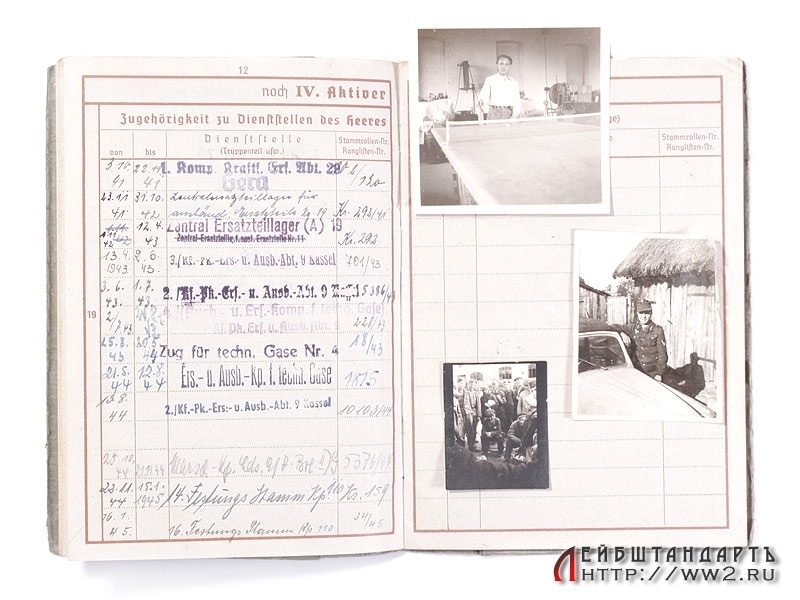 12
noch IV. Aktiver
Zugehörigkeit zu Dienststellen des Heeres
von bis Dienststelle (Truppenteil usw.) Stammrollen-Nr. Ranglisten-Nr.
3.10. 41 22.11. 41 1. Komp. Kraftf. Ers. Abt. 29
Gera
23.11 41 31.10. 42 Zentralersatzteillager für
ausländ. Ersatzteile Nr. 19 Kr. 293/41
12.4. 43 Zentral Ersatzteillager (A) 19
Zentral-Ersatzteillg. f. ausl. Ersatzteile Nr. 11 Kr. 292
13.4. 1943 2.6. 43. 3./Kf.-Pk.-Ers.- u. Ausb.-Abt. 9 Kassel 701/43
3.6. 43. 1.7. 43. 2./Kf.-Pk.-Ers.- u. Ausb.-Abt. 9
19
u. Ers.-Komp. f. techn. Gase
Kf. Pk. Ers. u. Ausb. Abt.
25.8. 43 20.5. 44 Zug für techn. Gase Nr. 4 18/43
21.5. 44 12.8. 44 Ers.- u. Ausb.-Kp. f. techn. Gase 1875
13.8. 44 2./Kf.-Pk.-Ers.- u. Ausb.-Abt. 9 Kassel
44 Marsch-Kp.
23.11. 44 15.1. 1945 14. Festungs Stamm Kp. 110 Kr. 159
16.1. 45. 16. Festungs Stamm Kp. 110 34/45
e)
Stammrollen-Nr.
Ranglisten-Nr.
ЛЕЙБШТАНДАРТЪ
HTTP://WW2.RU